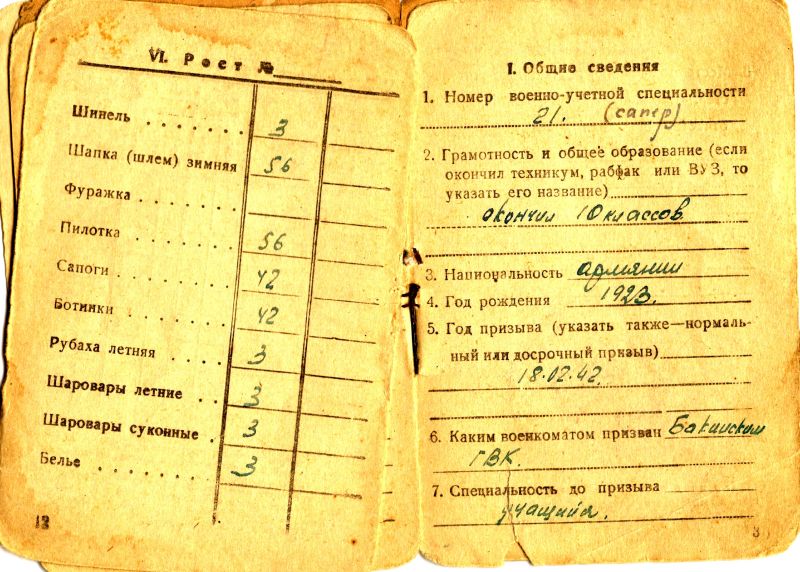 VI. Рост №
Шинель 3
Шапка (шлем) зимняя 56
Фуражка
Пилотка 56
Сапоги 42
Ботинки 42
Рубаха летняя 3
Шаровары летние 3
Шаровары суконные 3
Белье 3
12
I. Общие сведения
1. Номер военно-учетной специальности
21. (сапер)
2. Грамотность и общее образование (если
окончил техникум, рабфак или ВУЗ, то
указать его название)
окончил 10 классов
3. Национальность армянин
4. Год рождения 1923.
5. Год призыва (указать также—нормаль-
ный или досрочный призыв)
18.02.42.
6. Каким военкоматом призван Бакинским
ГВК.
7. Специальность до призыва
учащийся.
3